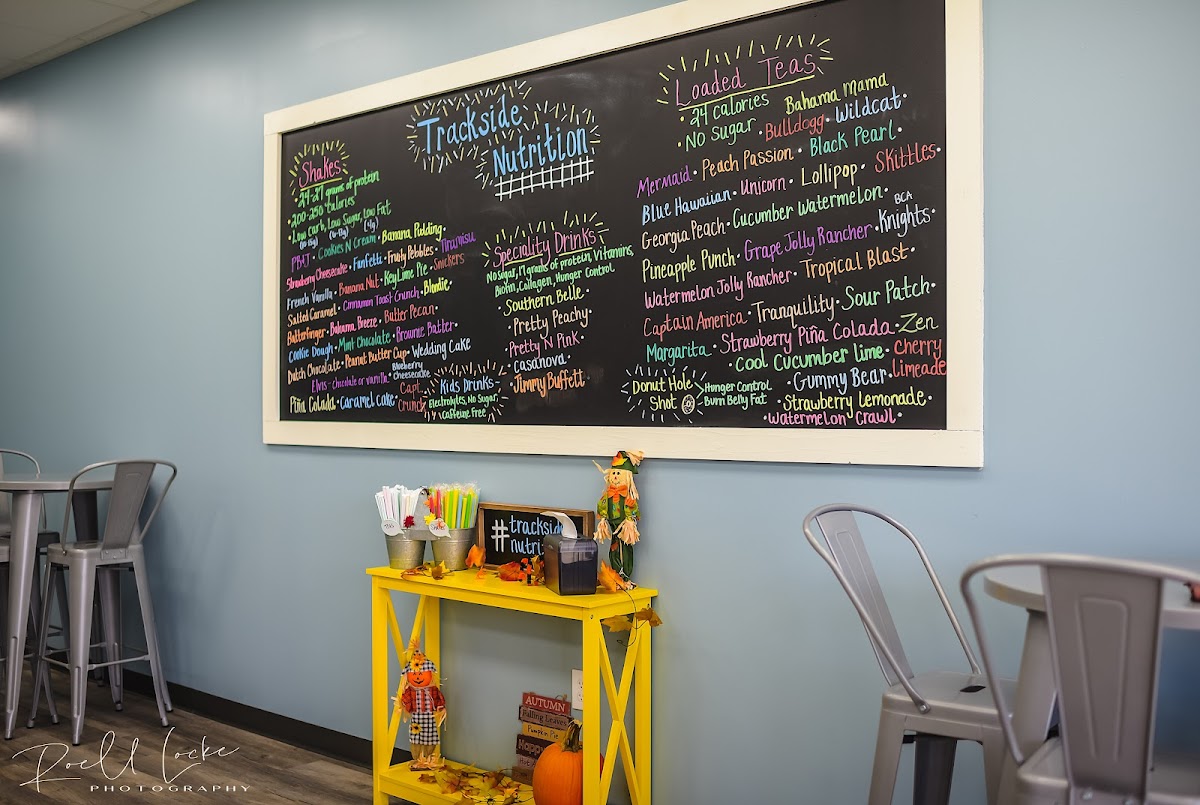 Trackside
Nutrition
Shakes
• 24-27 grams of protein
• 200-250 calories
• Low carb, Low Sugar, Low Fat
PB+J • Cookies N Cream • Banana Pudding •
Strawberry Cheesecake • Funfetti • Fruity Pebbles • Tiramisu
French Vanilla • Banana Nut • Key Lime Pie • Snickers
Salted Caramel • Cinnamon Toast Crunch • Blondie
Butterfinger • Bahama Breeze • Butter Pecan •
Cookie Dough • Mint Chocolate • Brownie Batter •
Dutch Chocolate • Peanut Butter Cup • Wedding Cake
Elvis - chocolate or vanilla • Blueberry Cheesecake •
Piña Colada • Caramel Cake • Capt. Crunch
Speciality Drinks
No Sugar, 17 grams of protein, Vitamins,
Biotin, Collagen, Hunger Control
Southern Belle •
• Pretty Peachy •
Pretty N Pink •
Casanova •
• Jimmy Buffett
Kids Drinks -
Electrolytes, No Sugar,
Caffeine Free
Loaded Teas
• 24 calories
• No Sugar
Bahama Mama
• Bulldogg • Wildcat •
Mermaid • Peach Passion • Black Pearl •
Blue Hawaiian • Unicorn • Lollipop • Skittles •
Georgia Peach • Cucumber Watermelon •
Pineapple Punch • Grape Jolly Rancher • BCA Knights •
Watermelon Jolly Rancher • Tropical Blast •
Captain America • Tranquility • Sour Patch •
Margarita • Strawberry Piña Colada • Zen
• Cool Cucumber Lime • Cherry Limeade
• Gummy Bear •
• Strawberry Lemonade •
• Watermelon Crawl •
Donut Hole
Shot
Hunger Control
Burn Belly Fat
#trackside
nutrit
AUTUMN
Falling Leaves
Pumpkin Pie
Happy
Roell Locke
PHOTOGRAPHY